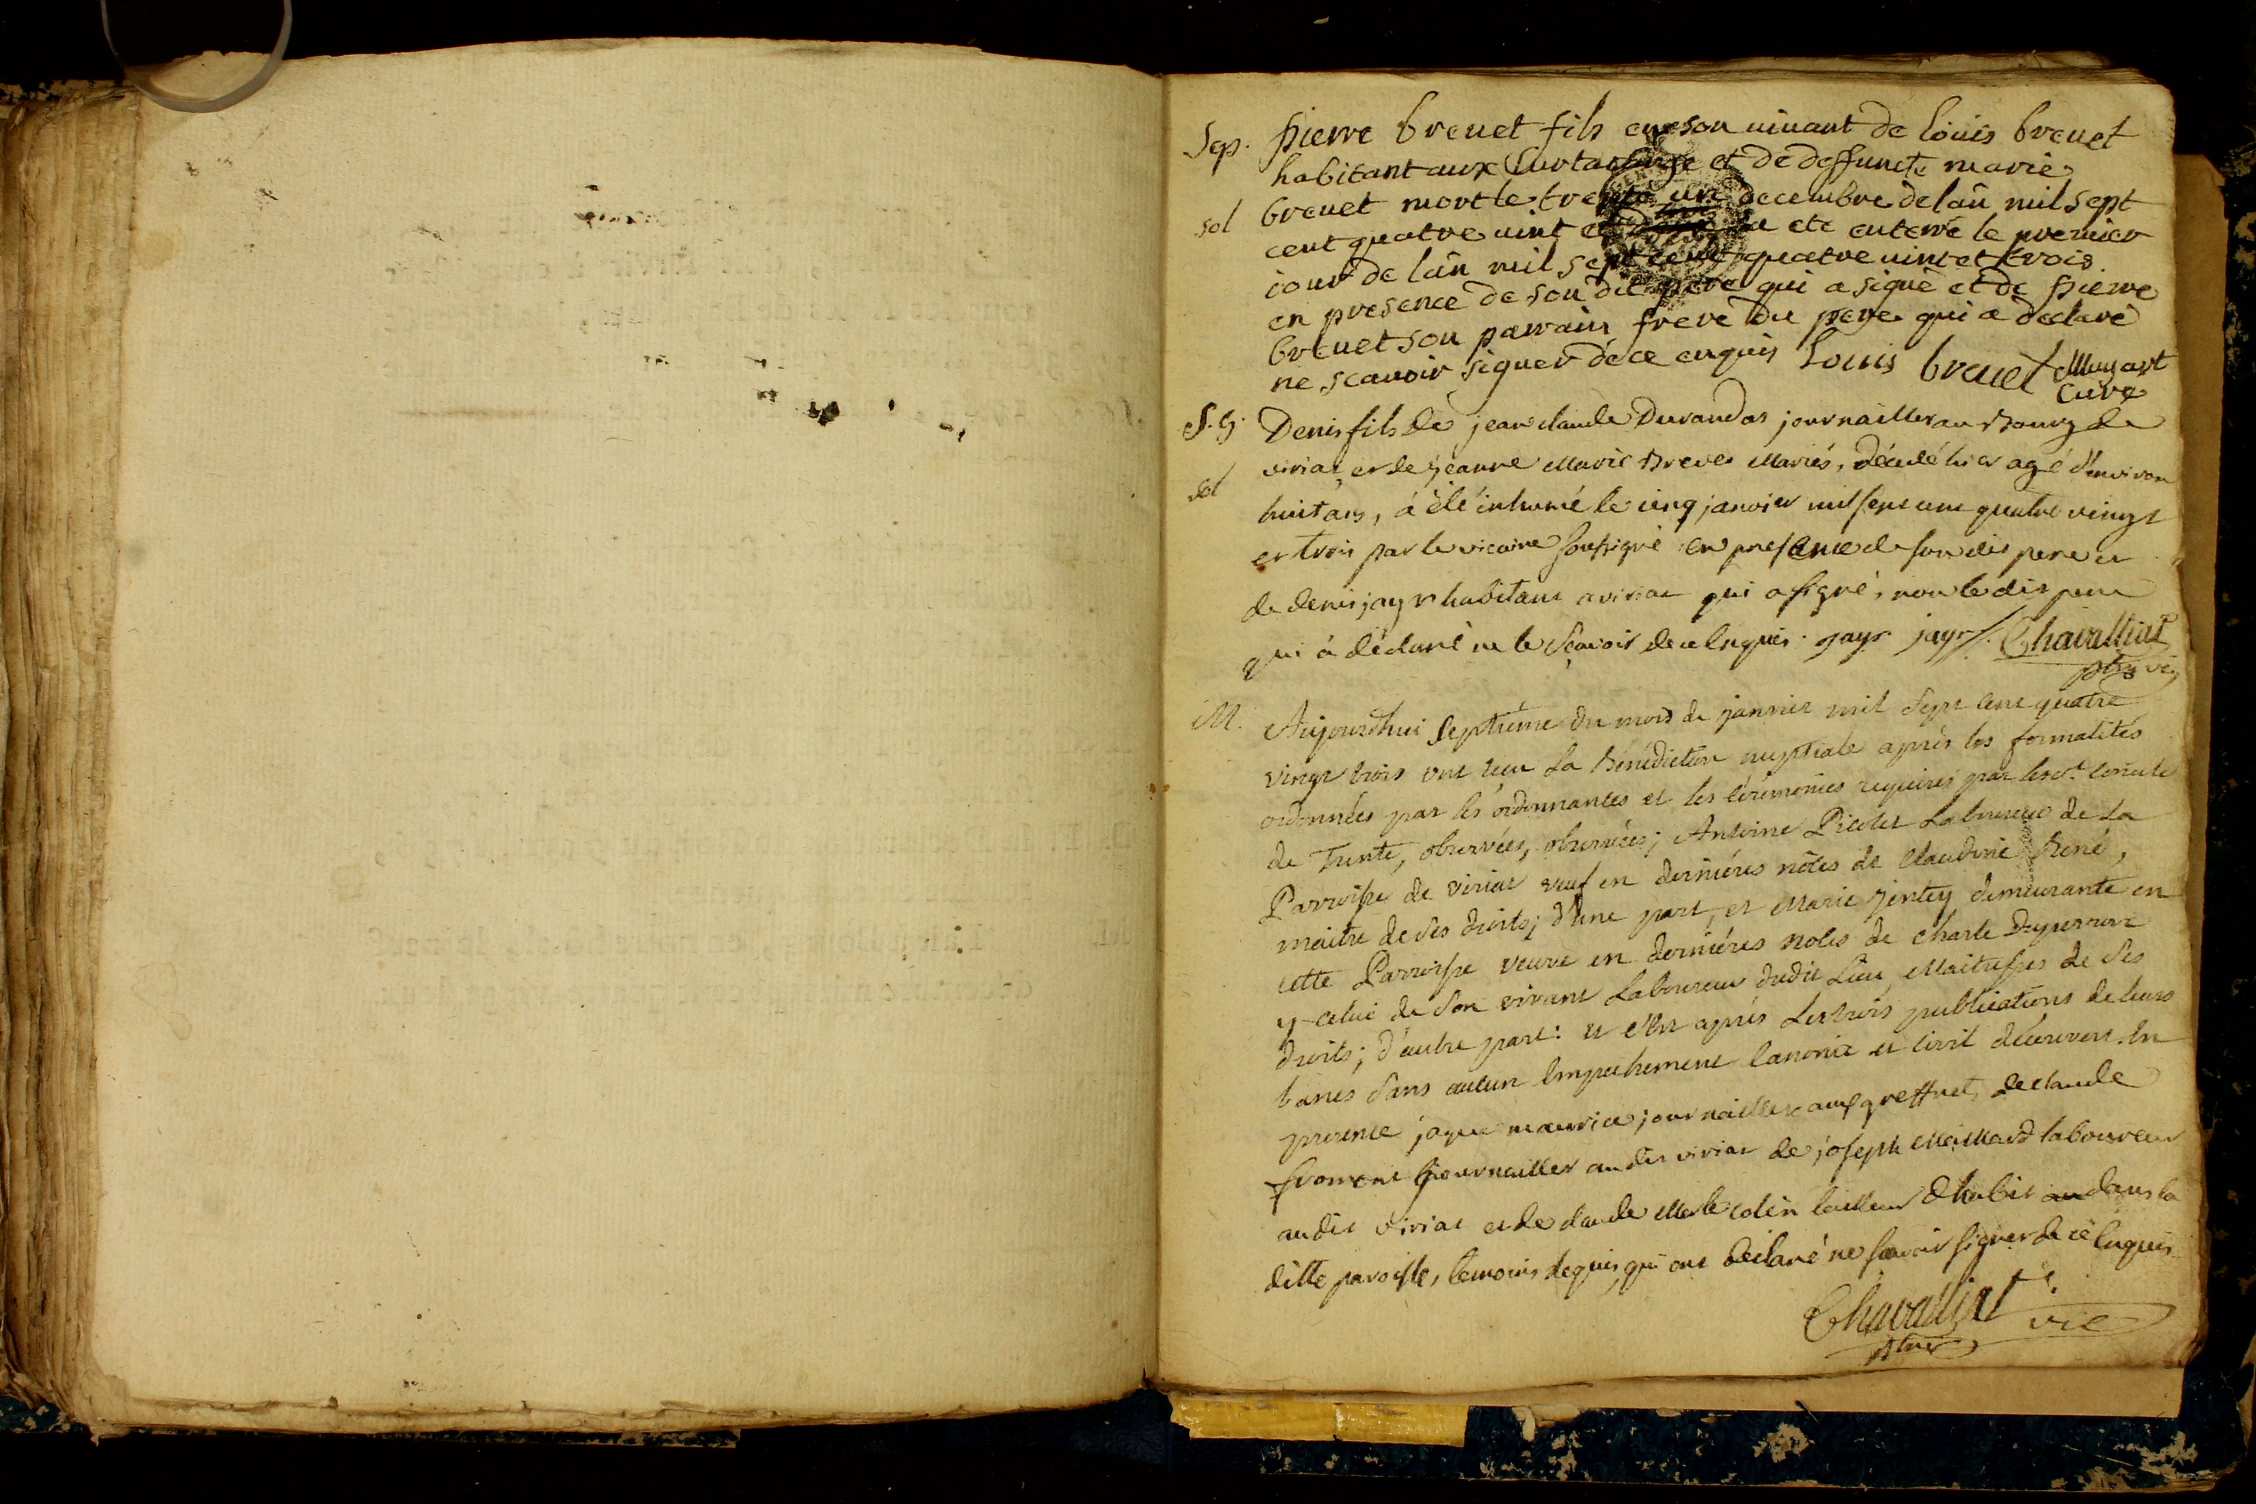 Sep. pierre breuet fils en son uiuant de Louis breuet
habitant aux et de deffuncte marie
sol breuet mort le trente un decembre de lan mil sept
cent quatre uint et a ete enterré le premier
jour de lan mil sept cent quatre uint et trois
en presence de son dit pere qui a signé et de pierre
breuet son parrain frere du pere qui a declaré
ne scauoir signer de ce enquis Louis breuet
curé
S. G. Denis fils de jean claude Durandas journaillier au Bourg de
viriat et de jeanne Marie Brevet Mariés, décédé hier agé d'environ
sol huit ans, à été inhumé le cinq janvier mil sept cent quatre vingt
et trois par le vicaire soussigné en presence de son dit pere et
de denis jayr habitant a viriat qui a signé, non le dit pere
qui à déclaré ne le sçavoir de ce enquis. jayr Chavalliat
ptre vic
M. Aujourdhui septieme du mois de janvier mil sept cent quatre
vingt trois ont reçu la Bénédiction nuptiale après les formalités
ordonnées par les ordonnances et les cérémonies requises par le st. Concile
de Trente, observées, observées; Antoine Picolet Laboureur de la
Parroisse de viriat veuf en derniéres nôces de Claudine Bené,
maitre de ses droits; d'une part, et Marie jentey demeurante en
cette Parroisse veuve en derniéres noces de Charle
y celui de son vivant Laboureur dudit Lieu, Maitresses de ses
droits; d'autre part: et c'est après les trois publications de leurs
banes sans aucun Empechement Canonix et Civil découvert. En
presence jaque maurice journaillier aux greffiet, de claude
froment journaillier au dit viriat de joseph Maillard laboureur
au dit viriat et de claude Merle colin tailleur d'habit au dans la
ditte paroisse, temoins requis, qui ont déclaré ne savoir signer de ce Enquis
Chavalliat
ptre vic